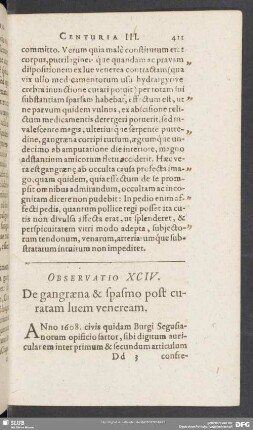 CENTURIA III. 411
committo. Verum quia malè constitutum erat
corpus, putriliginisque quandam ac pravam
dispositionem ex lue venerea contractam (qua
vir ullo medicamentorum usu hydrargyrive
crebra inunctione curari potuit) per totam sui
substantiam sparsam habebat, effectum est, ut
ne parvum quidem vulnus, ex abscissione relictum
medicamentis detergeri potuerit, sed invalescente
magis, ulteriusque serpente putredine,
gangræna corripi totum, ægrumque undecimo
ab amputatione die interiore, magno
adstantium amicorum fletu occideret. Hæc vera
est gangrænæ ab occulta causa profecta imago,
quam quidem, quia effectum de se prompsit
omnibus admirandum, occultam ac incognitam
dicere non pudebit: In pedio enim affecti
pedis, quantum pollice tegi posset ita cutis
non divulsa affecta erat, ut splenderet, &
perspicuitatem vitri modo adepta, subjectorum
tendonum, venarum, arteriarumque substratarum
intuitum non impediret.
OBSERVATIO XCIV.
De gangræna & spasmo post curatam
luem veneream.
ANno 1608. civis quidam Burgi Segusianorum
opificio sartor, sibi digitum auricularem
inter primum & secundum articulum
Dd 3 confre-
SLUB